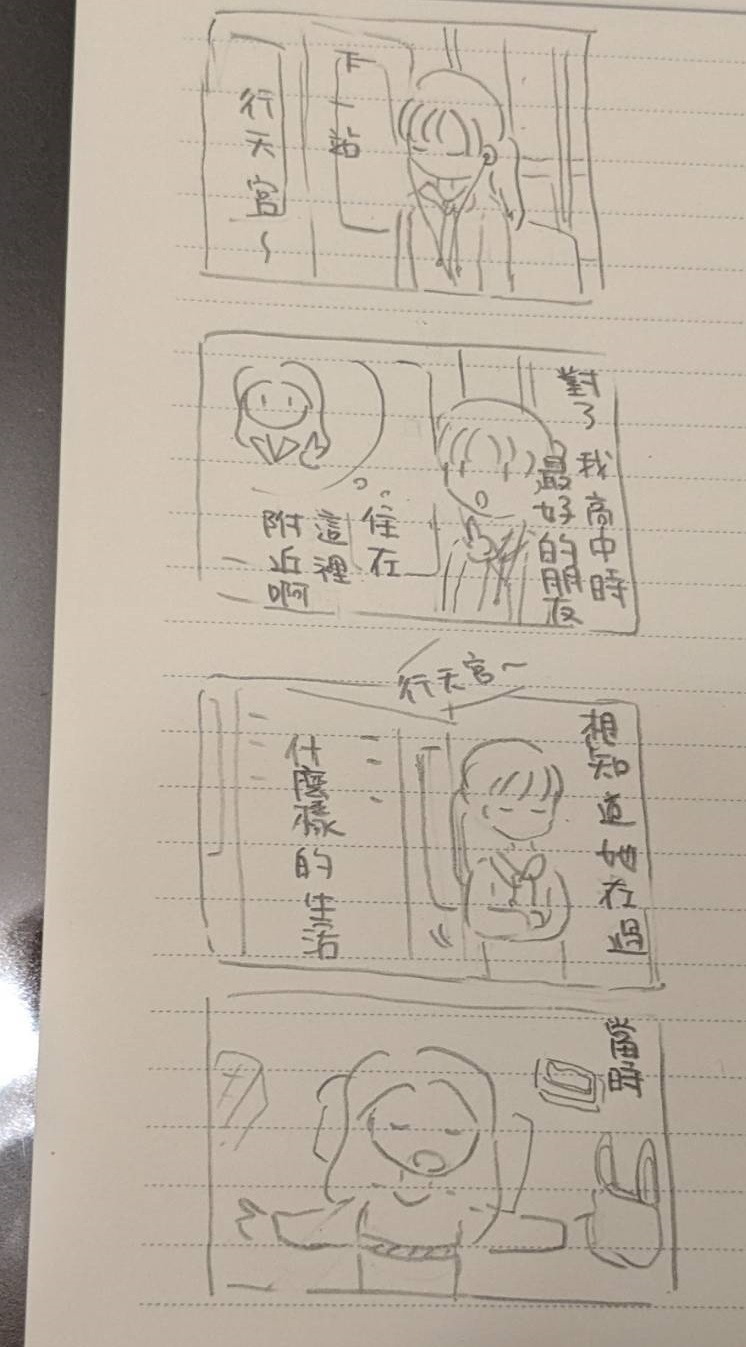 下一站
行天宮~
對了
我高中時
最好的朋友
住在
這裡
附近啊
行天宮~
想知道她在過
什麼樣的生活
當時